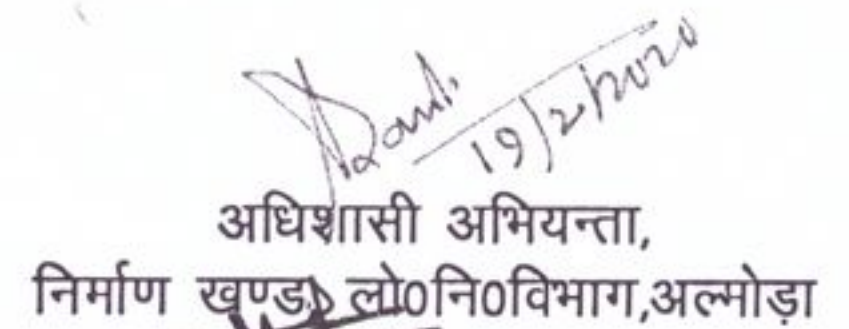 19/2/2020
अधिशासी अभियन्ता,
निर्माण खण्ड, लो0नि0विभाग,अल्मोड़ा